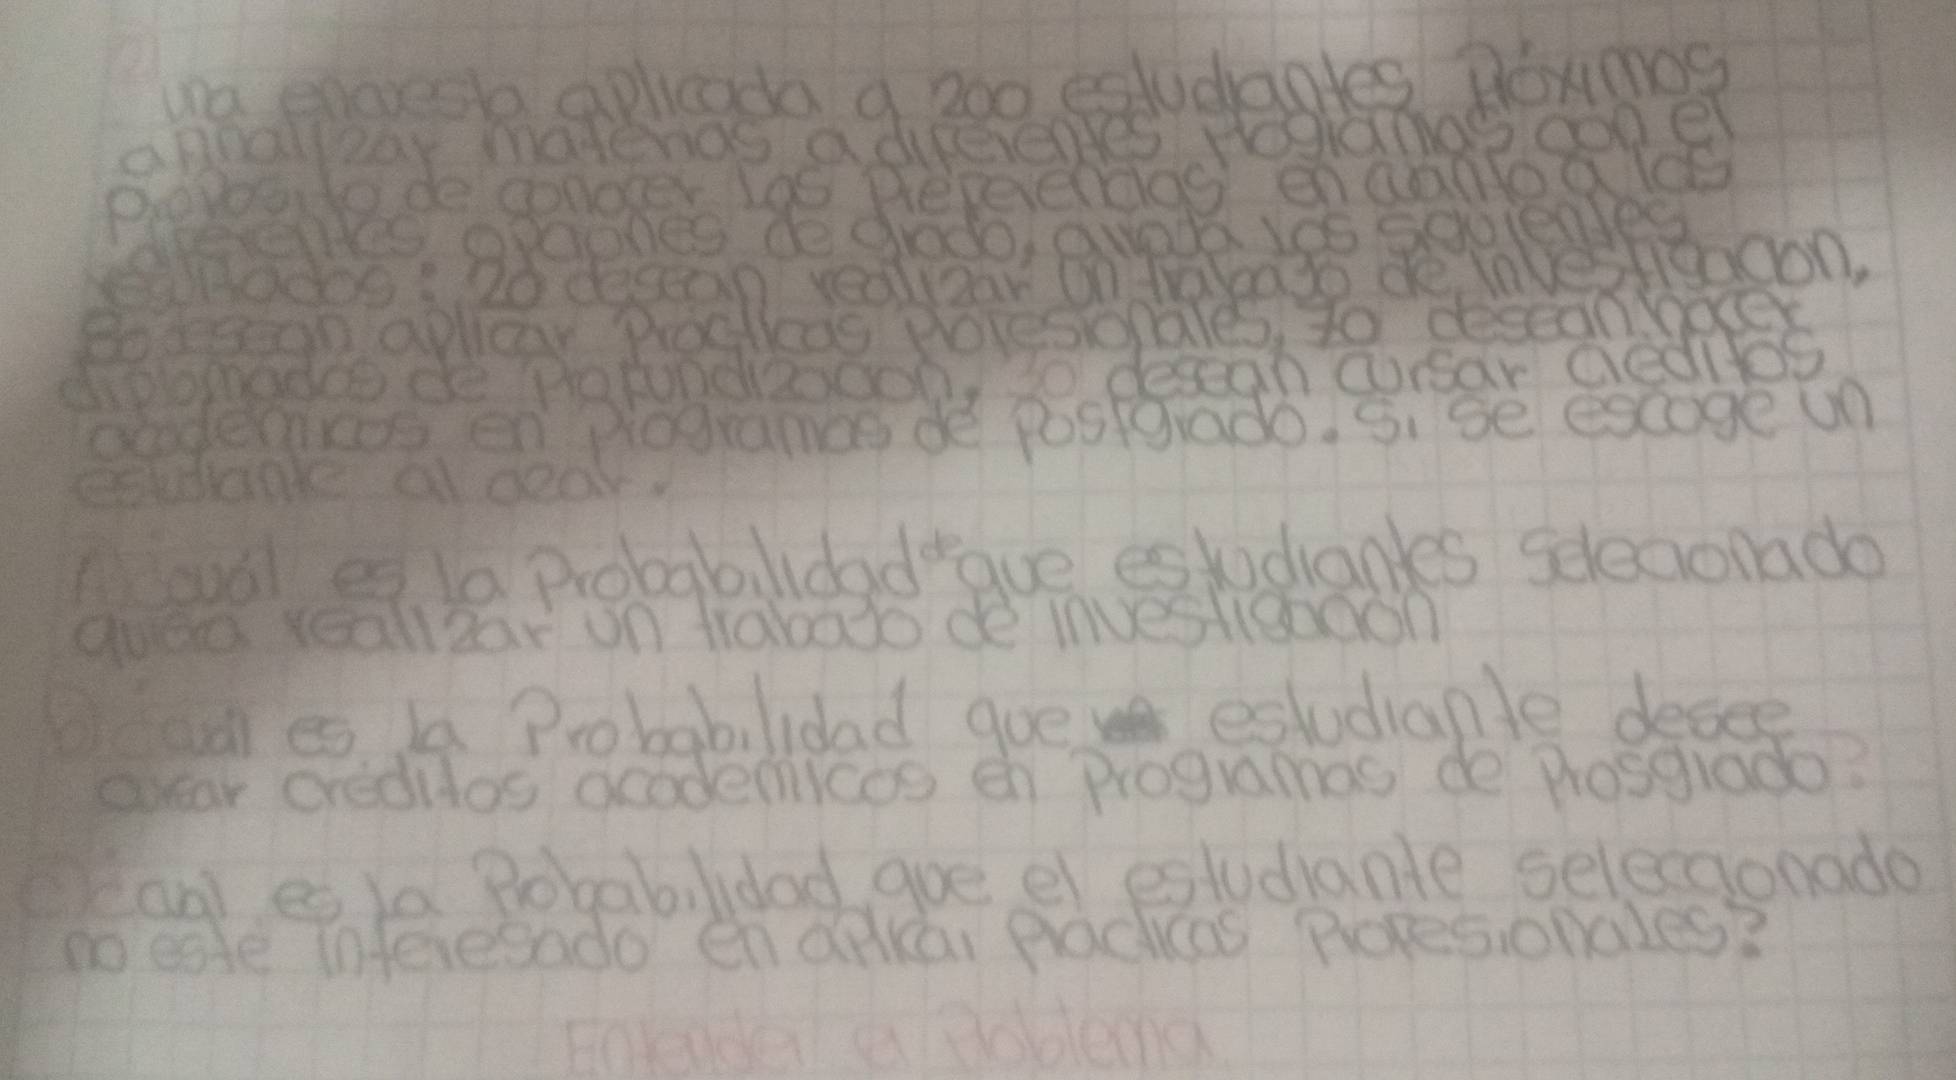 una encuesta aplicada a 200 estudiantes Próximos
a finalizar materias a diferentes programas con el
Proposito de conocer las preferencias en cuanto a las
diferentes opciones de grado, arroja los siguientes
resultados: 20 desean realizar un trabajo de investigacion,
desean aplicar Practicas profesionales, 70 desean hacer
diplomados de Profundizacion, 30 desean cursar creditos
academicos en Programas de Postgrado. Si se escoge un
estudiante al azar.
A. cuál es la Probabilidad de que estudiantes selecionado
quiera realizar un trabajo de investigacion
b. cual es la Probabilidad que estudiante desee
cursar créditos academicos en programas de Prosgrado?
c. cual es la Probabilidad que el estudiante seleccionado
no este interesado en aplicar practicas Profesionales?
Entender el Problema